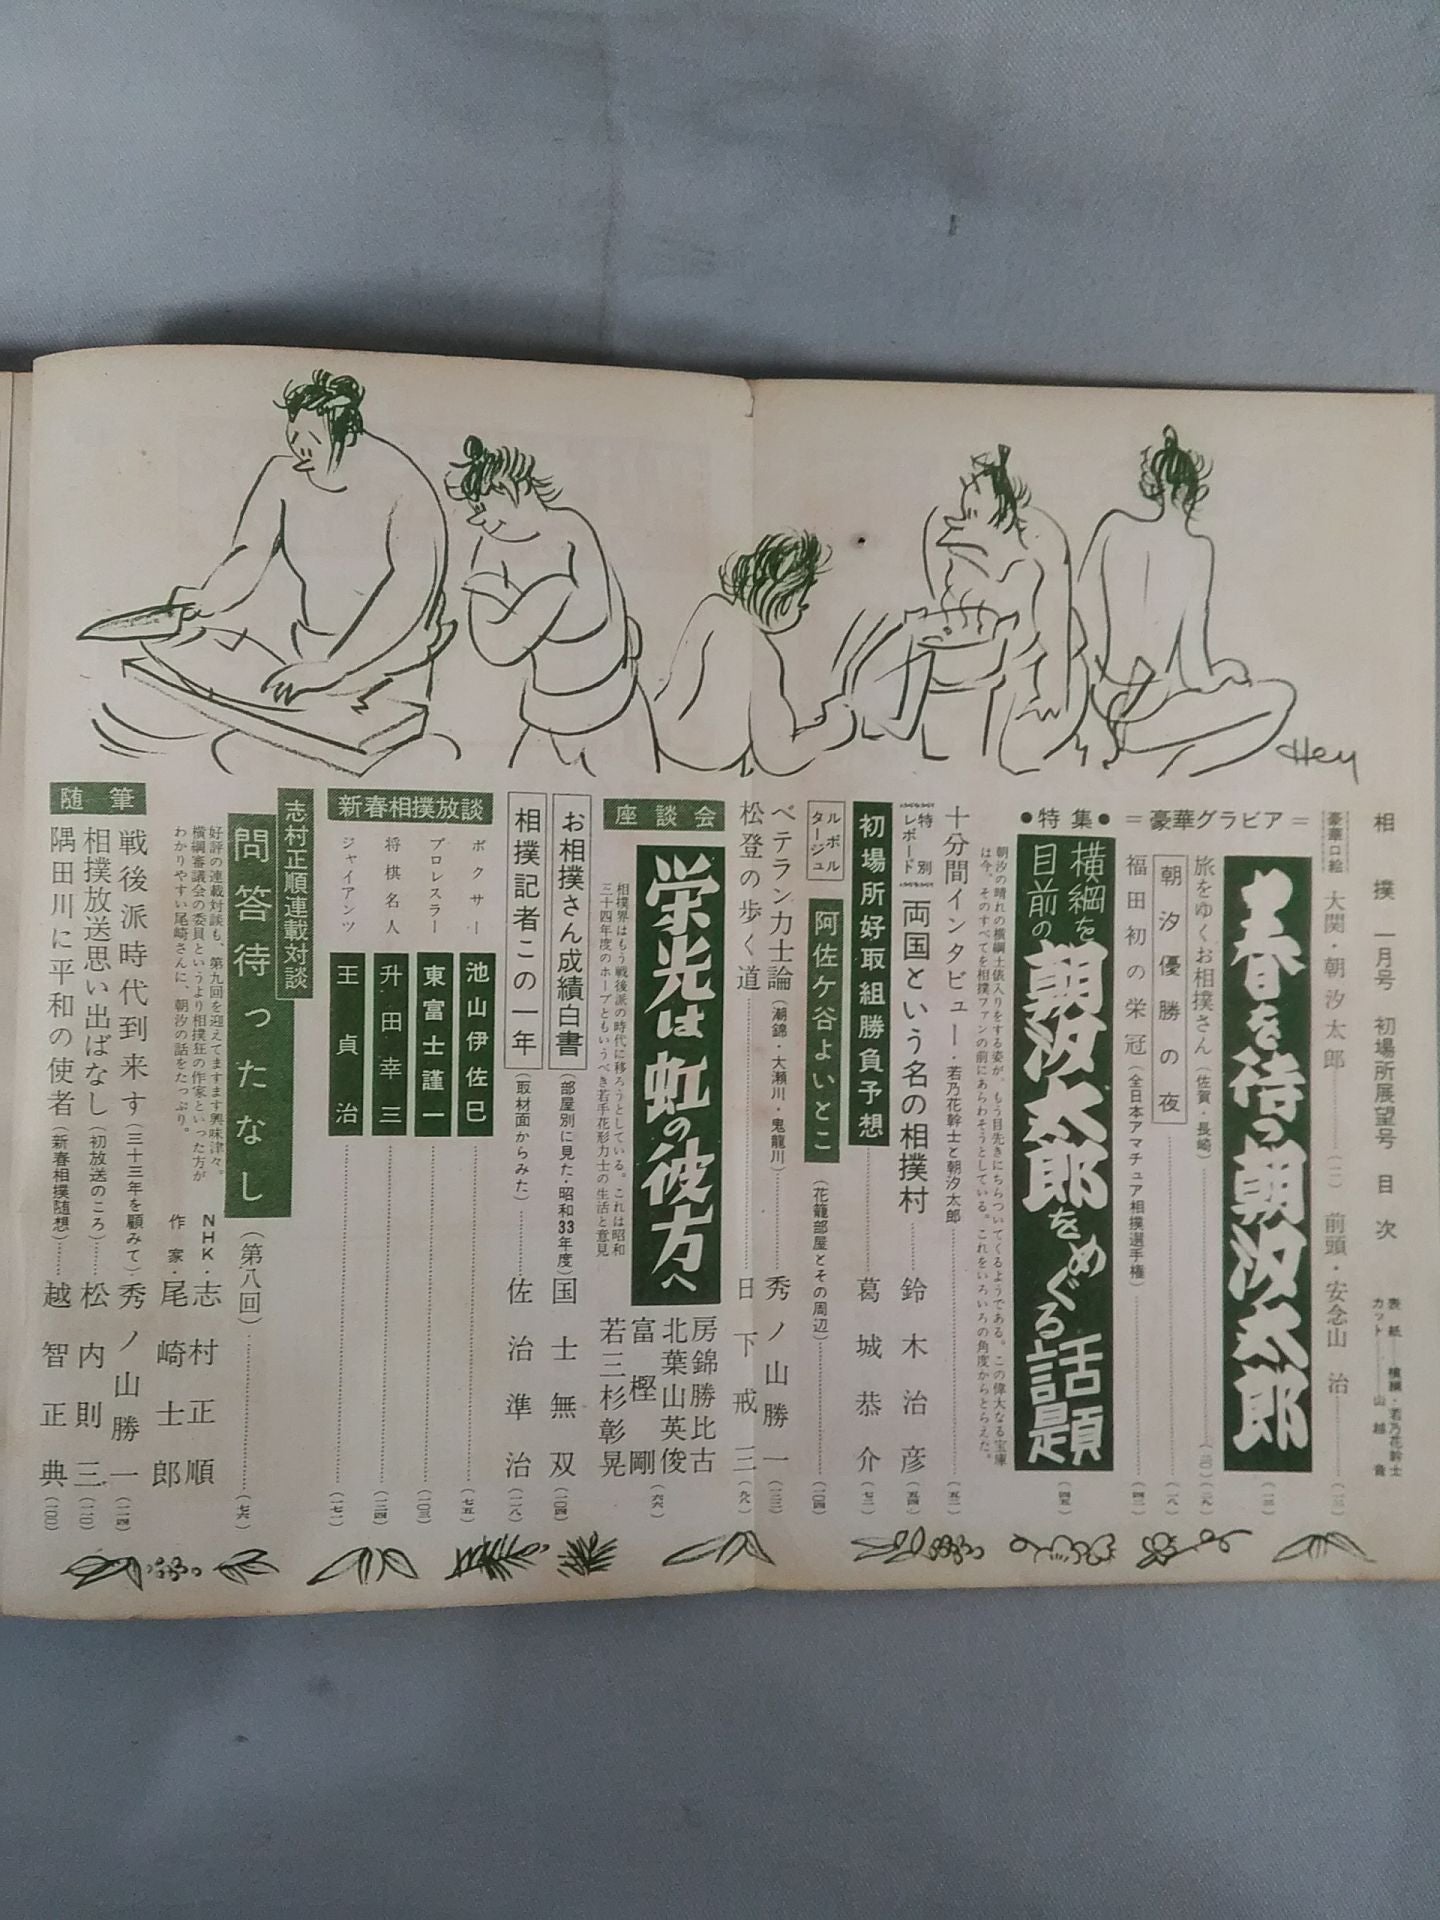 相撲 一月号 初場所展望号 目次
表紙……横綱・若乃花幹士
カット……山越 音
豪華口絵
大関・朝汐太郎……(一一) 前頭・安念山 治……(一二)
＝豪華グラビア＝
春を待つ朝汐太郎……(一三)
旅をゆくお相撲さん(佐賀・長崎)……(三〇)(三九)
朝汐優勝の夜……(一八)
福田初の栄冠(全日本アマチュア相撲選手権)……(四二)
●特集●
横綱を目前の朝汐太郎をめぐる話題……(四五)
朝汐の晴れの横綱土俵入りをする姿が、もう目先きにちらついてくるようである。この偉大なる宝庫
は今、そのすべてを相撲ファンの前にあらわそうとしている。これをいろいろの角度からとらえた。
十分間インタビュー・若乃花幹士と朝汐太郎……(五二)
特別レポート
両国という名の相撲村……鈴木治彦(五四)
初場所好取組勝負予想……葛城恭介(七二)
ルポルタージュ
阿佐ケ谷よいとこ(花籠部屋とその周辺)……(一〇四)
ベテラン力士論(潮錦・大瀬川・鬼龍川)……秀ノ山勝一(一三三)
松登の歩く道……日下戒三(九八)
座談会
栄光は虹の彼方へ
相撲界はもう戦後派の時代に移ろうとしている。これは昭和
三十四年度のホープともいうべき若手花形力士の生活と意見
房錦勝比古
北葉山英俊
富樫 剛
若三杉彰晃
(六六)
お相撲さん成績白書(部屋別に見た・昭和33年度)……国士無双(一〇四)
相撲記者この一年(取材面からみた)……佐治準治(一一八)
新春相撲放談
ボクサー 池山伊佐巳……(七五)
プロレスラー 東富士謹一……(一〇三)
将棋名人 升田幸三……(一二四)
ジャイアンツ 王貞治……(一七一)
志村正順連載対談
問答待ったなし(第八回)……(七六)
好評の連載対談も、第九回を迎えてますます興味津々。
横綱審議会の委員というより相撲狂の作家といった方が
わかりやすい尾崎さんに、朝汐の話をたっぷり。
NHK・志村正順
作家・尾崎士郎
随筆
戦後派時代到来す(三十三年を顧みて)……秀ノ山勝一(一一四)
相撲放送思い出ばなし(初放送のころ)……松内則三(一二〇)
隅田川に平和の使者(新春相撲随想)……越智正典(一〇〇)
Hey